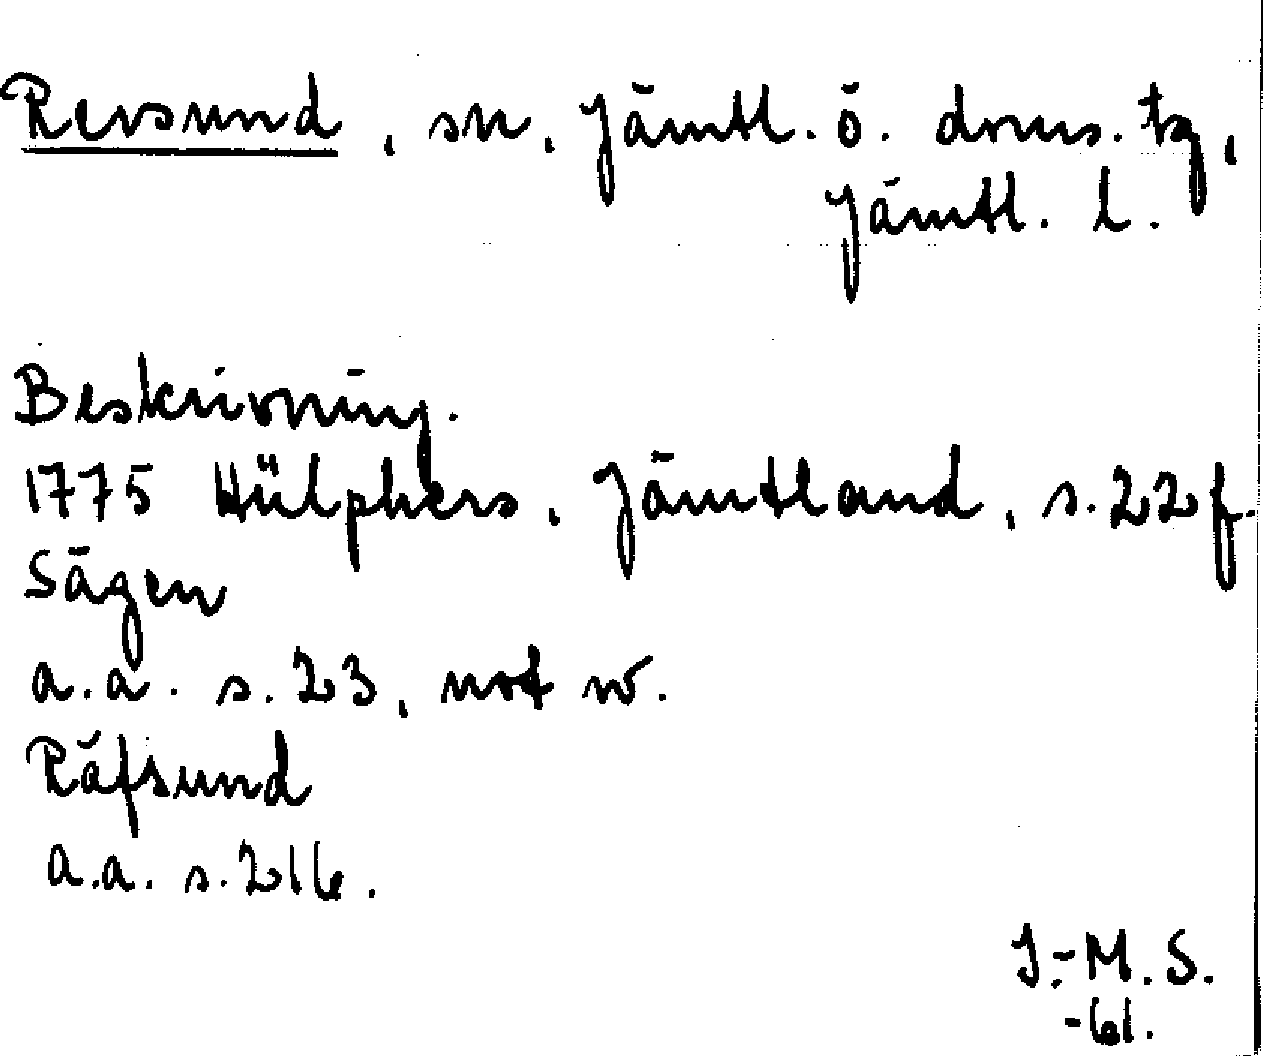 Revsund, sn, Jämtl. ö. doms. tg,
Jämtl. l.
Beskrivning.
1775 Hülphers, Jämtland, s. 22 f.
Sägen
a.a. s. 23, not w.
Räfsund
a.a. s. 216.
I.-M.S.
-61.